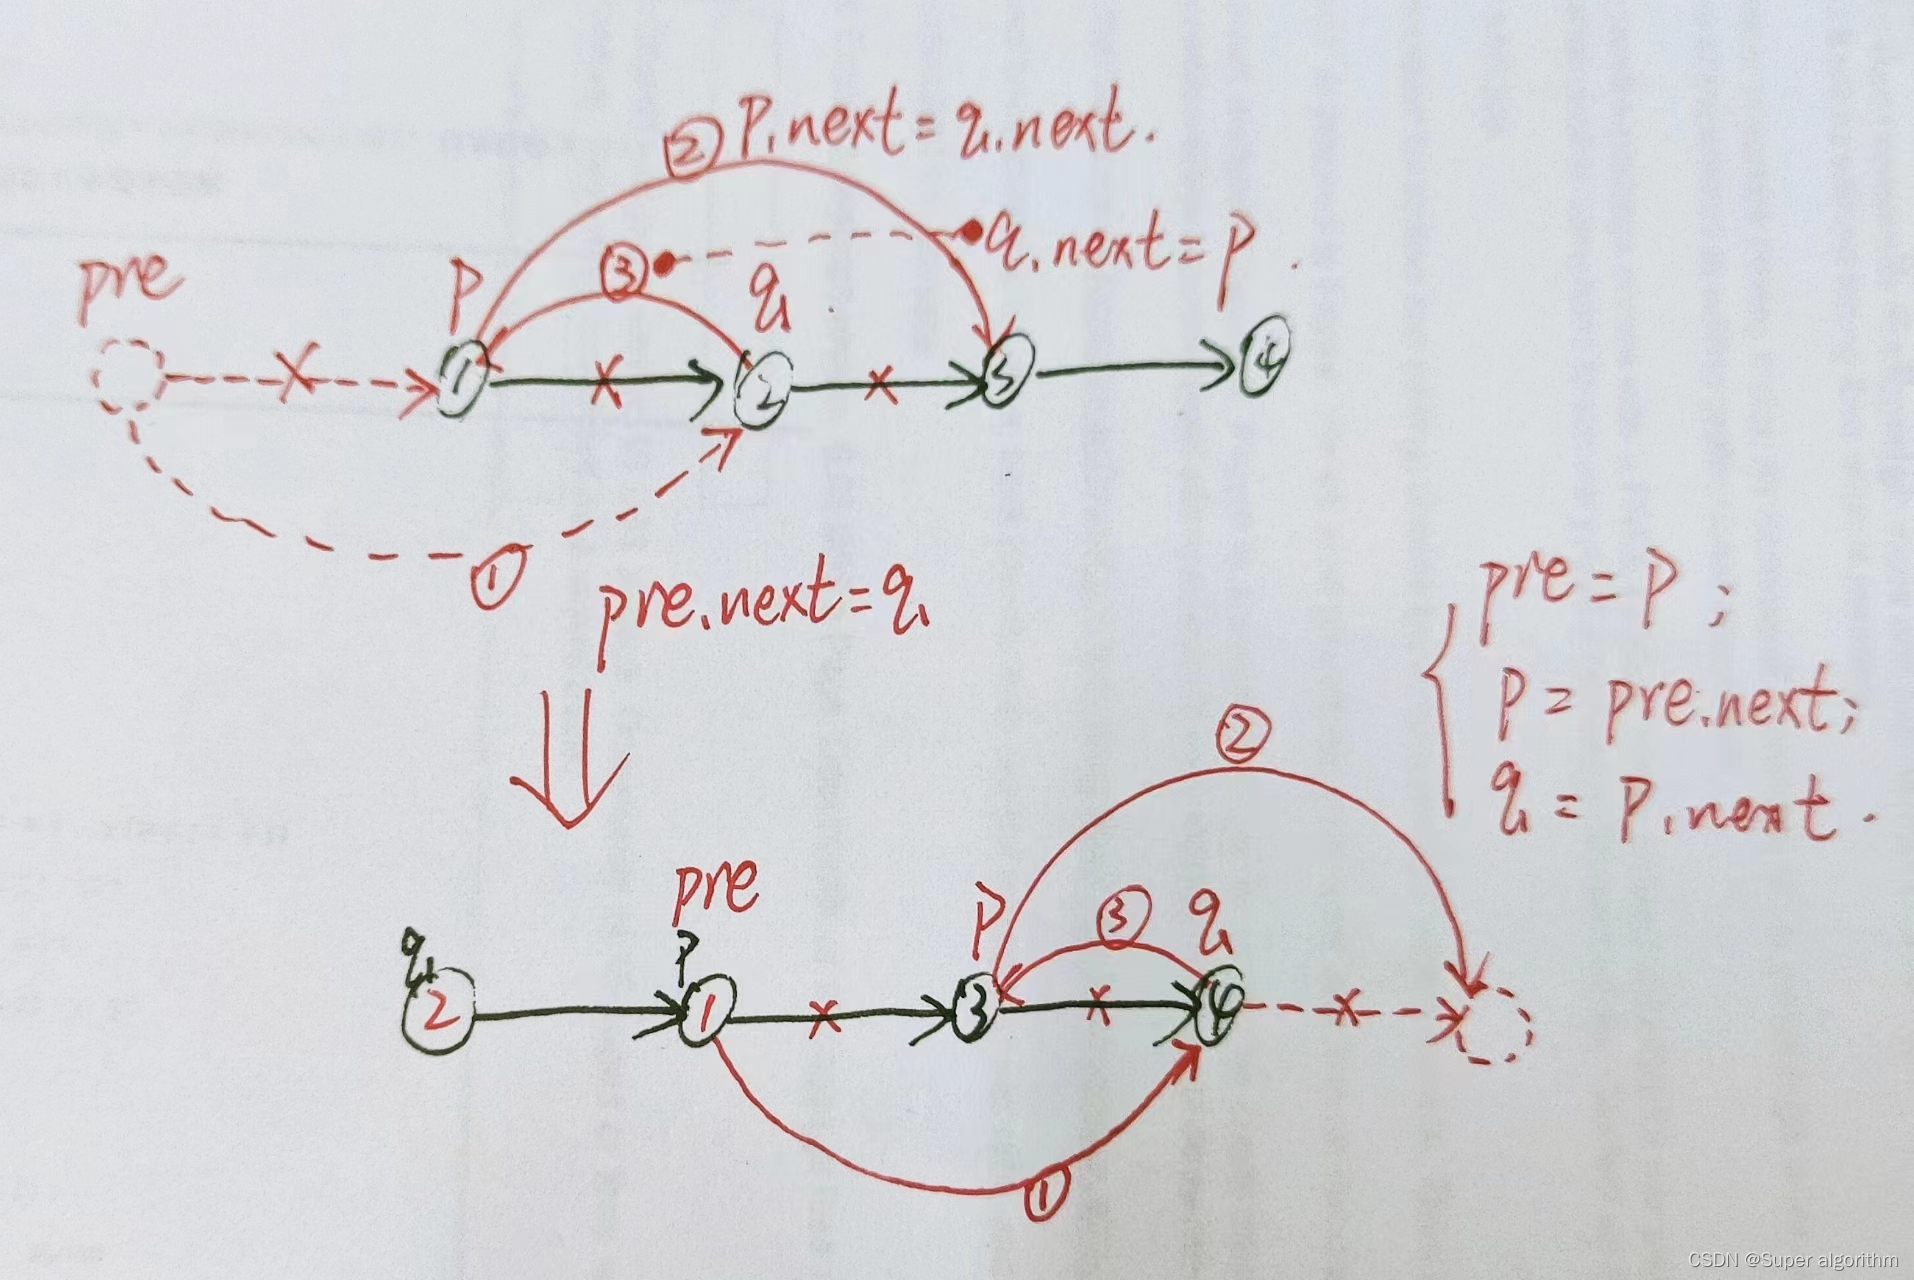 ② P.next = q.next.
③ q.next = P.
pre P q
1 2 3 4
①
pre.next = q
pre = P ;
P = pre.next;
q = P.next.
②
pre P ③ q
q P
2 1 3 4
①
CSDN @Super algorithm